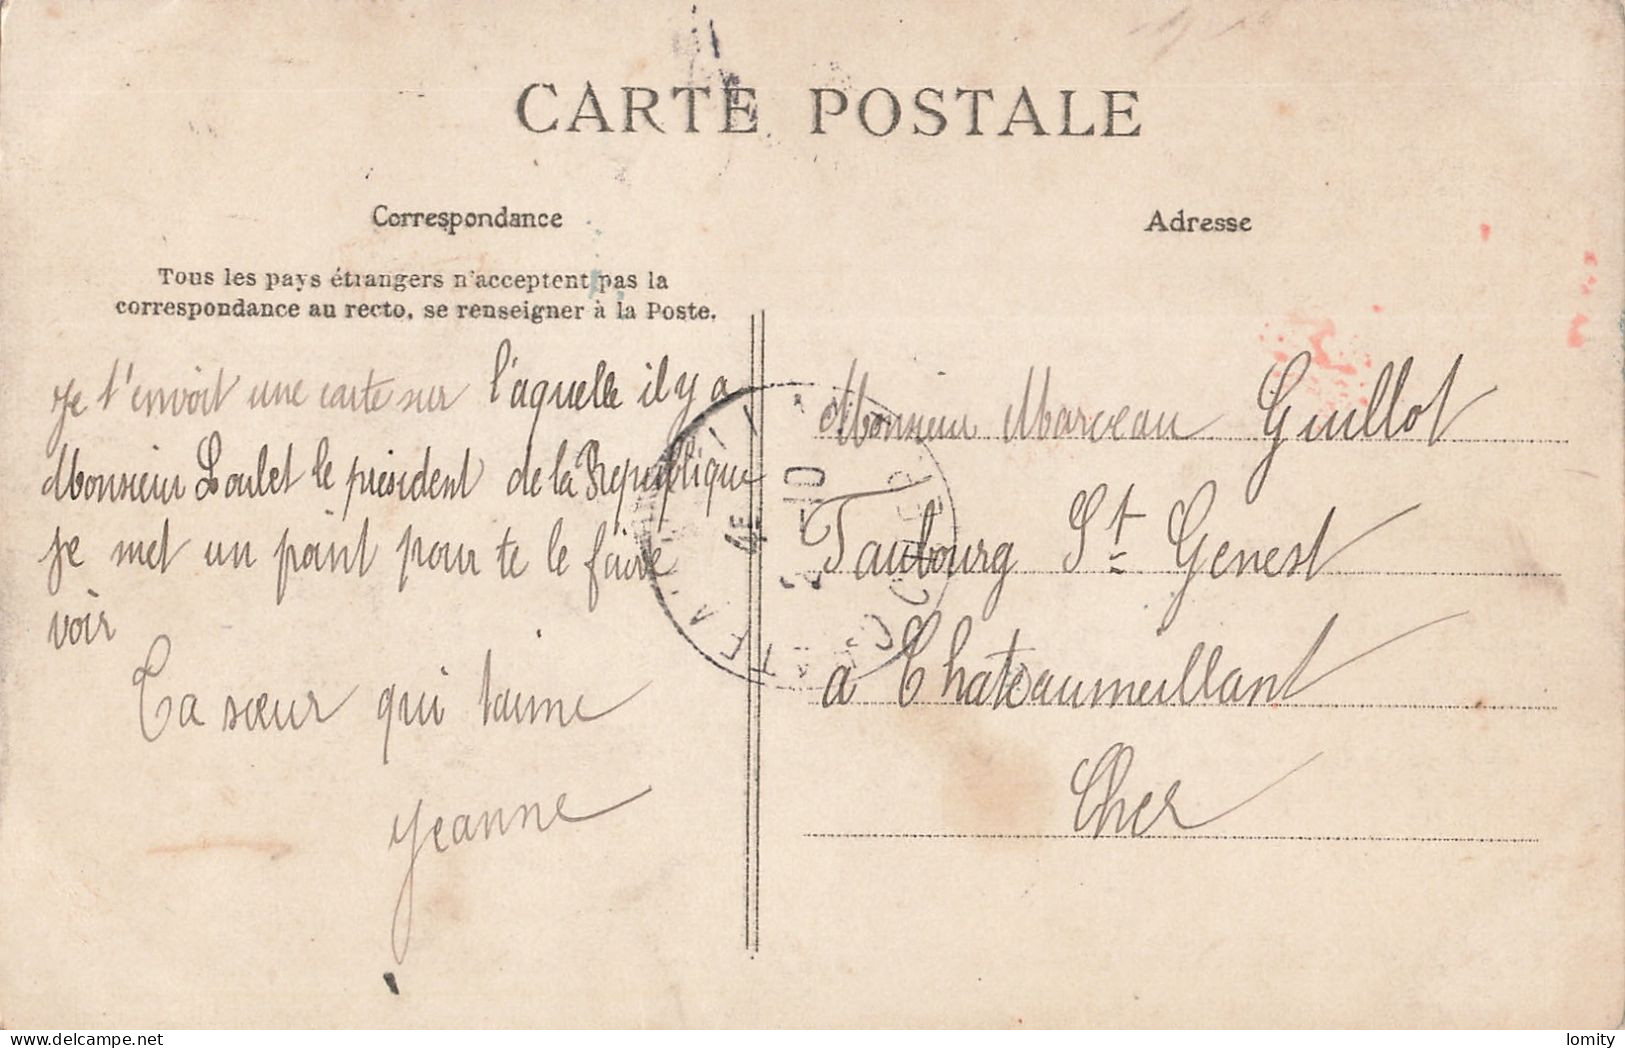 CARTE POSTALE
Correspondance
Tous les pays étrangers n'acceptent pas la
correspondance au recto, se renseigner à la Poste.
Je t'envoit une carte sur l'aquelle il y a
Monsieur Loubet le président de la République
je met un point pour te le faire
voir
Ta sœur qui taime
Jeanne
Adresse
Monsieur Marceau Guillot
Faubourg St Genest
a Chateaumeillant
Cher
lomity